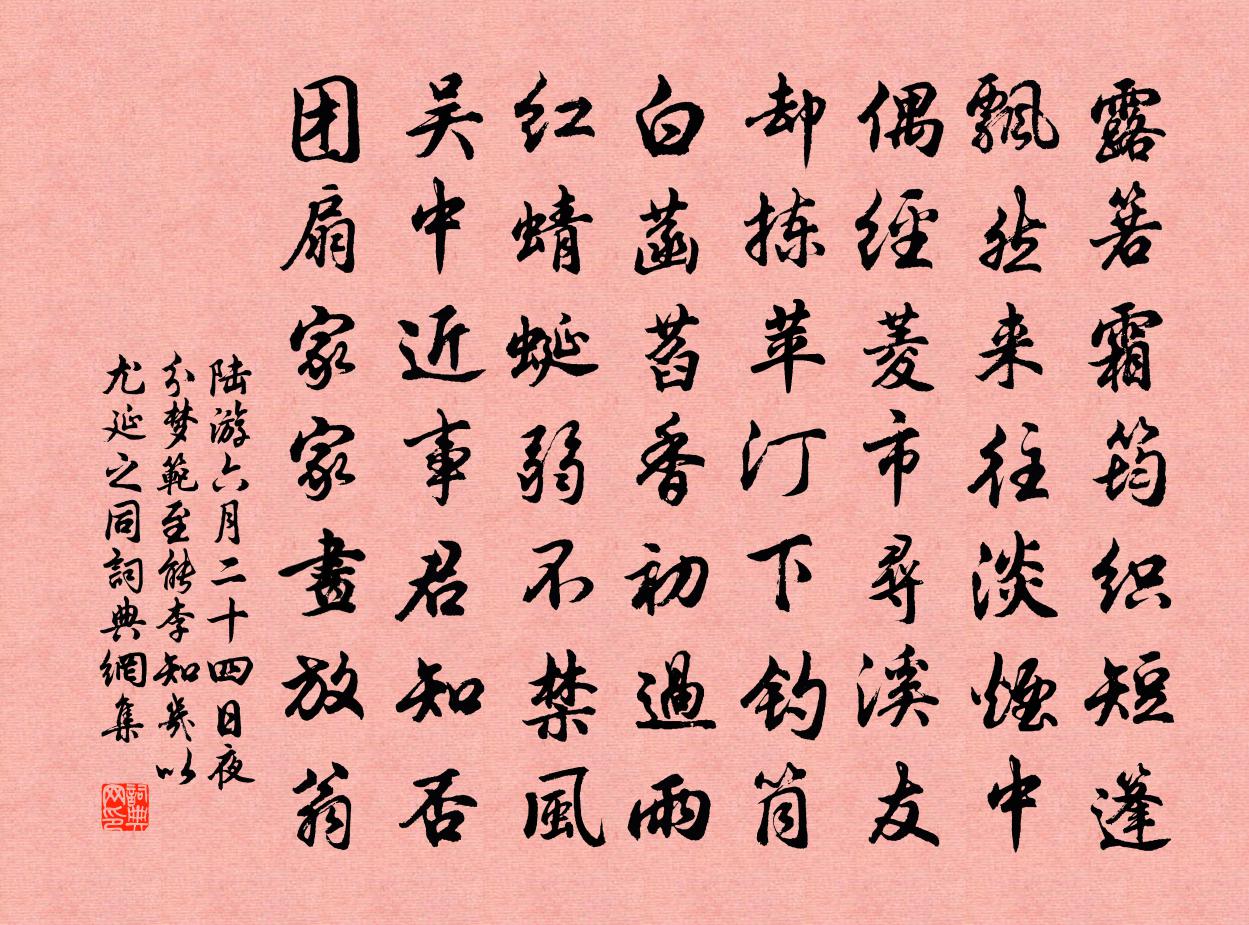 露箬霜筠织短蓬
飘然来往淡煙中
偶经菱市尋溪友
却拣苹汀下钓筒
白菡萏香初過雨
红蜻蜓弱不禁風
吴中近事君知否
团扇家家畫放翁
陆游六月二十四日夜
分梦範至能李知幾以
尤延之同詞典網集
詞典网印